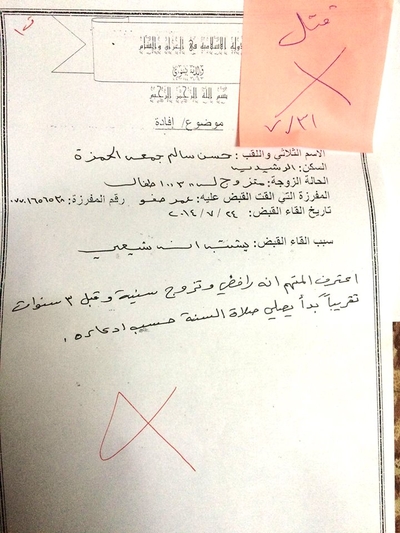 قتل
٧/٣١
دولة الإسلامية في العراق والشام
ولاية نينوى
بسم الله الرحمن الرحيم
موضوع/ إفادة
الاسم الثلاثي واللقب: حسن سالم جمعه الحمزة
السكن: الرشيدية
الحالة الزوجة: متزوج
المفرزة التي القت القبض عليه: عمر صفو رقم المفرزة:
تاريخ القاء القبض: ٢٠١٤/٧/٢٤
سبب القاء القبض: يشتبه انه شيعي
اعترف المتهم انه رافضي وتزوج سنية وقبل ٣ سنوات
تقريباً بدأ يصلي صلاة السنة حسب ادعائه.